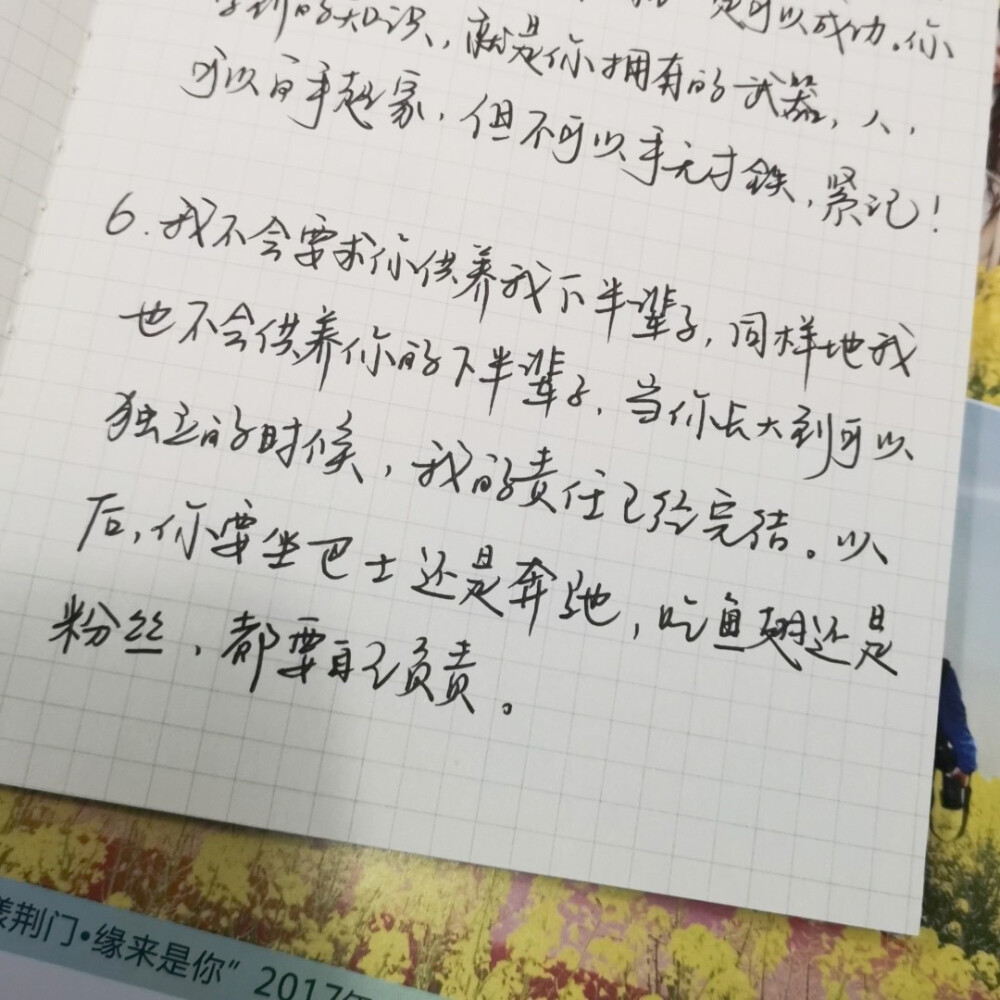 一定可以成功。你
学到的知识，就是你拥有的武器，人，
可以白手起家，但不可以手无寸铁，紧记！
6.我不会要求你供养我下半辈子，同样地我
也不会供养你的下半辈子，当你长大到可以
独立的时候，我的责任已经完结。以
后，你要坐巴士还是奔驰，吃鱼翅还是
粉丝，都要自己负责。
荆门•缘来是你“ 2017年